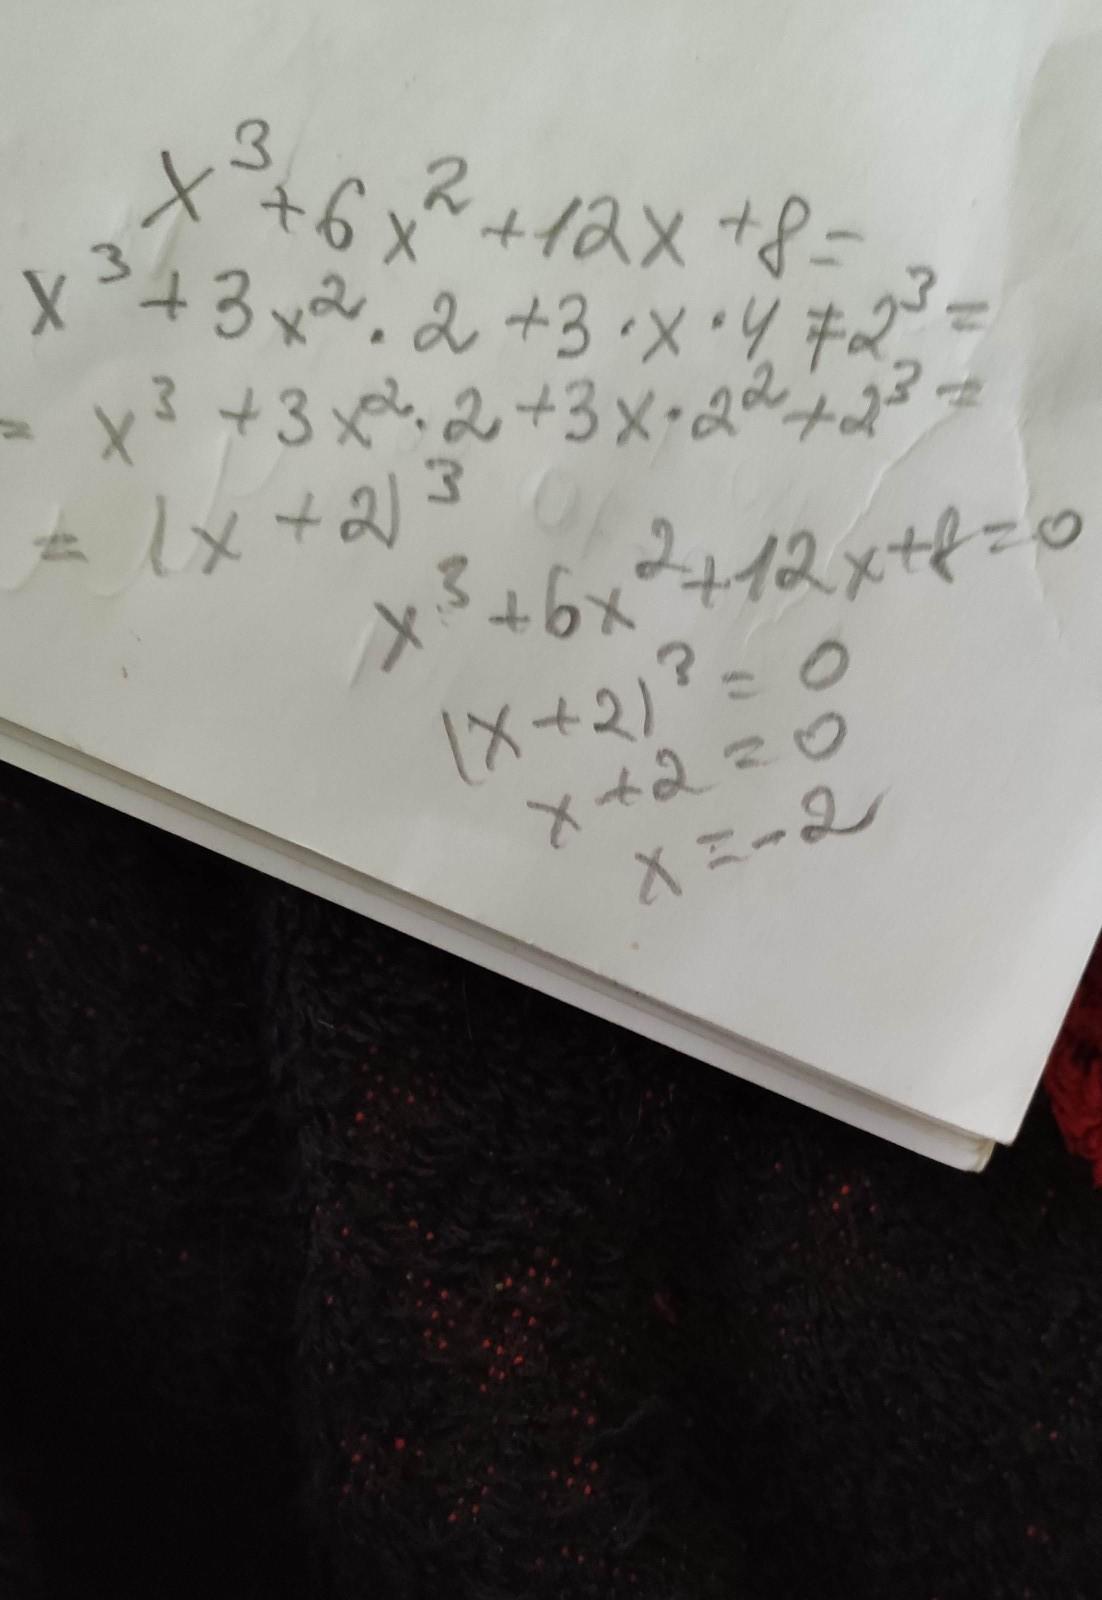 x³+6x²+12x+8=
x³+3x²·2+3·x·4+2³=
= x³+3x²·2+3x·2²+2³=
= (x+2)³
x³+6x²+12x+8=0
(x+2)³=0
x+2=0
x=-2